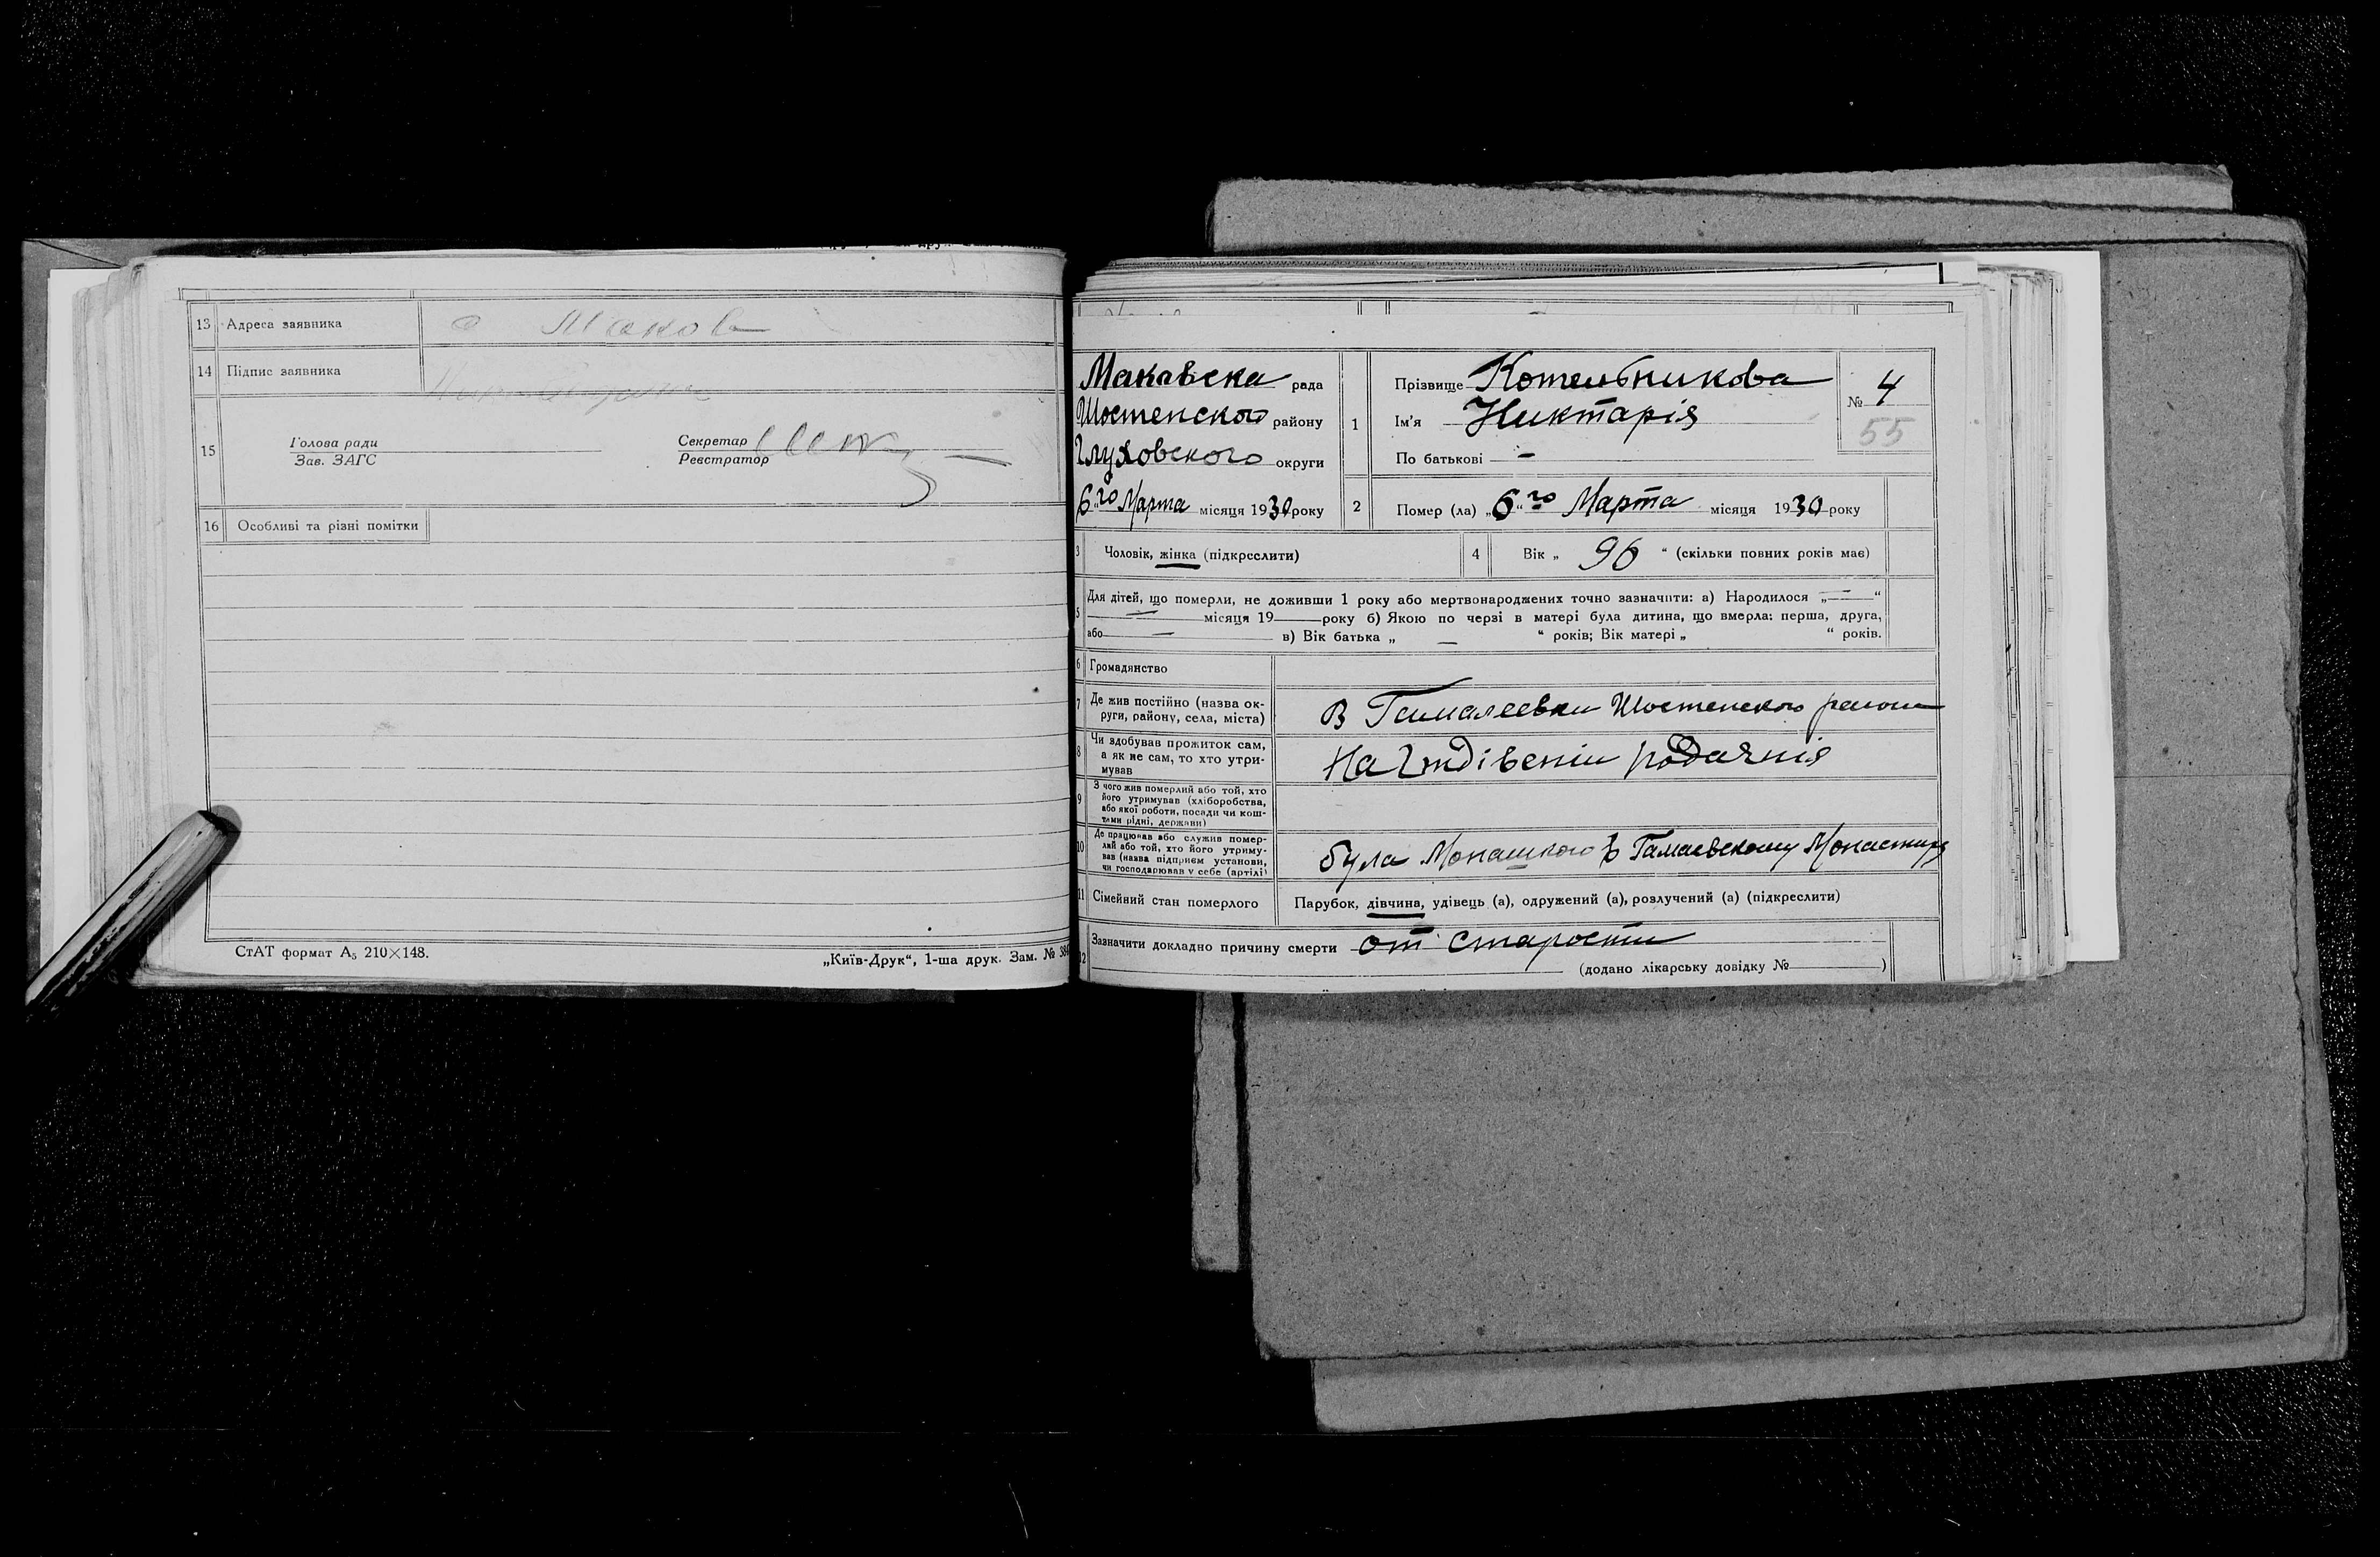 13 Адреса заявника с Маков
14 Підпис заявника
15 Голова ради
Зав. ЗАГС
Секретар
Реєстратор
16 Особливі та різні помітки
СтАТ формат А₅ 210×148.
„Київ-Друк“, 1-ша друк. Зам. №
Макавска рада
Шостенского району
Глуховского округи
6го Марта місяця 1930 року
1 Прізвище Котельникова
Ім'я Никтарія
По батькові —
№ 4
55
2 Помер (ла) „6го“ Марта місяця 1930 року
3 Чоловік, жінка (підкреслити)
4 Вік „ 96 “ (скільки повних років має)
5 Для дітей, що померли, не доживши 1 року або мертвонароджених точно зазначити: а) Народилося „—“
— місяця 19— року б) Якою по черзі в матері була дитина, що вмерла: перша, друга,
або — в) Вік батька „ — “ років; Вік матері „ “ років.
6 Громадянство
7 Де жив постійно (назва ок-
руги, району, села, міста)
В Гамалеевки Шостенского района
8 Чи здобував прожиток сам,
а як не сам, то хто утри-
мував
На
9 З чого жив померлий або той, хто
його утримував (хліборобства,
або якої роботи, посади чи кош-
тами рідні, держави)
10 Де працював або служив помер-
лий або той, хто його утриму-
вав (назва підприєм установи,
чи господарював у себе (артілі)
була Монашкою в Гамаевскому Монастиря
11 Сімейний стан померлого
Парубок, дівчина, удівець (а), одружений (а), розлучений (а) (підкреслити)
12 Зазначити докладно причину смерти от старости
(додано лікарську довідку № )